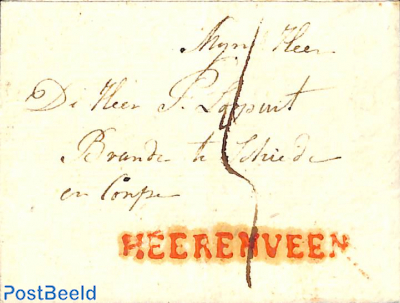 Mijn Heer
De Heer P. 
Brande te Schiede
en Comp
HEERENVEEN
PostBeeld